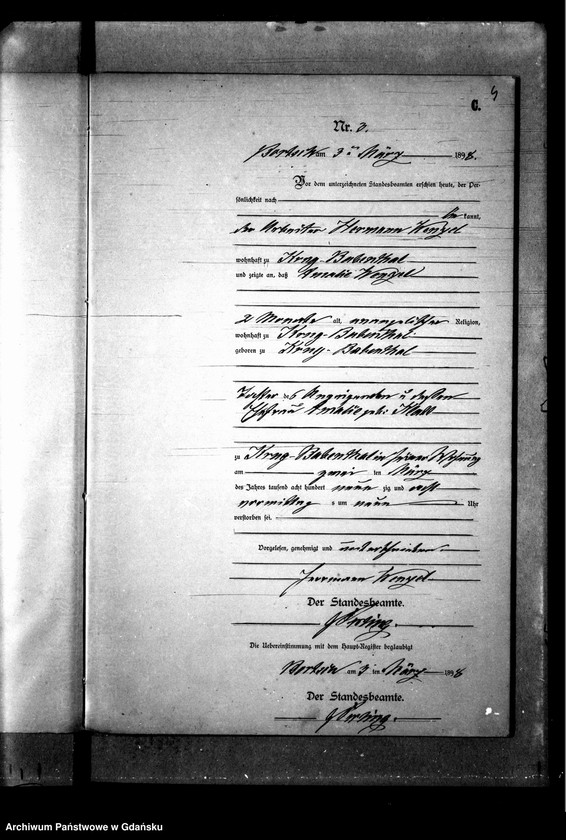 C.
Nr. 3.
am 3ten März 1898.
Vor dem unterzeichneten Standesbeamten erschien heute, der Per-
sönlichkeit nach
be kannt,
der Arbeiter Hermann Wenzel
wohnhaft zu Krug-Babenthal
und zeigte an, daß Amalie Wenzel
2 Monate alt, evangelischer Religion,
wohnhaft zu Krug-Babenthal
geboren zu Krug-Babenthal
Tochter des Anzeigenden u dessen
Ehefrau Amalie geb: Klatt
zu Krug-Babenthal in seiner Wohnung
am zwei ten März
des Jahres tausend acht hundert neun zig und acht
vormittag s um neun Uhr
verstorben sei.
Vorgelesen, genehmigt und unterschrieben
Herrmann Wenzel
Der Standesbeamte.
Die Uebereinstimmung mit dem Haupt-Register beglaubigt
am 3 ten März 1898
Der Standesbeamte.
Archiwum Państwowe w Gdańsku